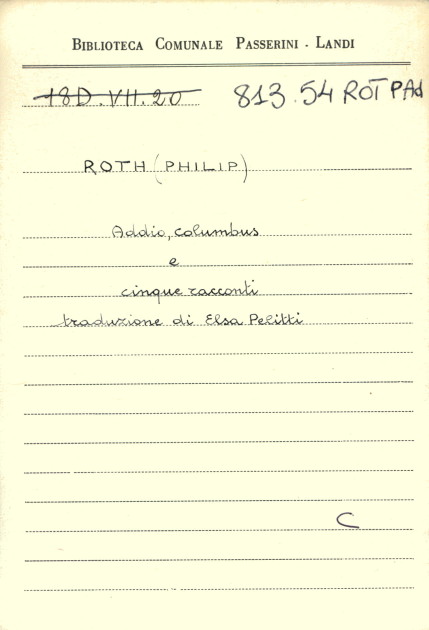 BIBLIOTECA COMUNALE PASSERINI - LANDI
18D.VII.20 813.54 ROT PAd
ROTH (PHILIP)
Addio, columbus
e
cinque racconti
traduzione di Elsa Pelitti
C